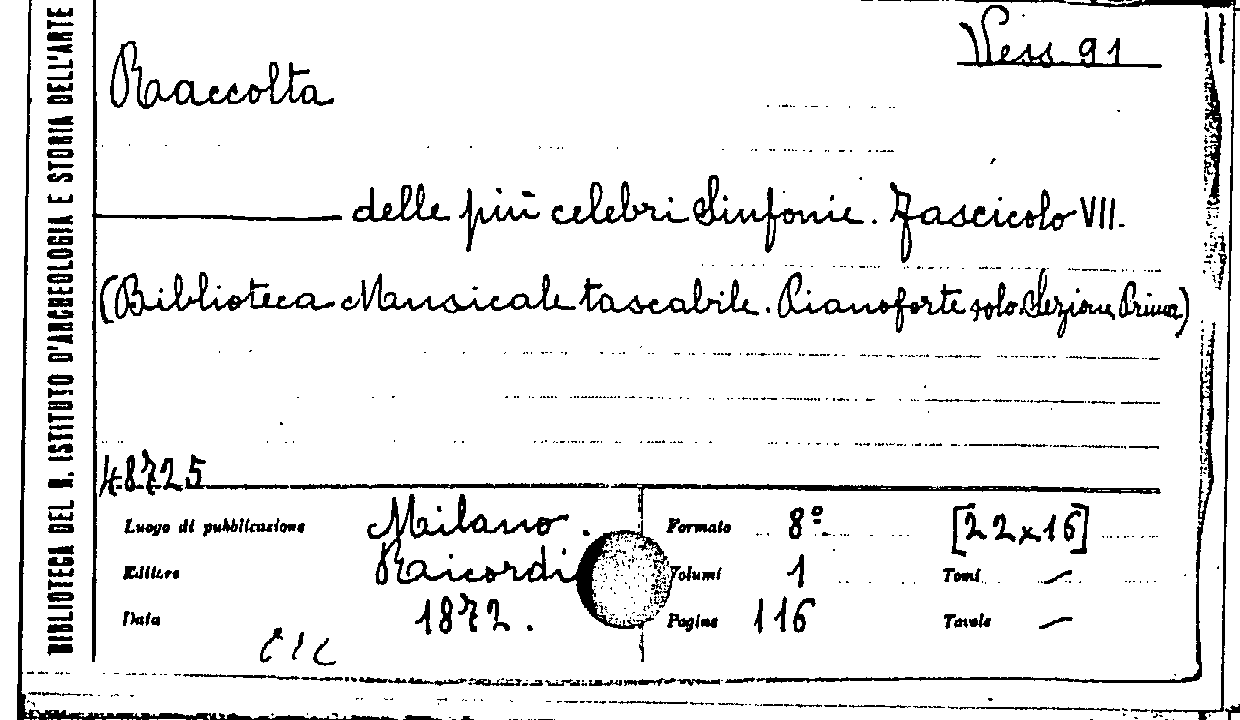 BIBLIOTECA DEL R. ISTITUTO D'ARCHEOLOGIA E STORIA DELL'ARTE
Vess 91
Raccolta
delle più celebri Sinfonie. Fascicolo VII.
(Biblioteca Musicale tascabile. Pianoforte solo. Sezione Prima)
48725
Luogo di pubblicazione Milano. Formato 8º. [22x16]
Editore Ricordi Volumi 1 Tomi —
Data 1872. Pagine 116 Tavole —